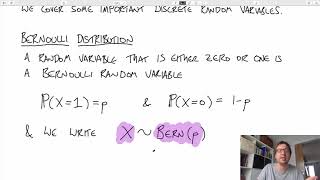 WE COVER SOME IMPORTANT DISCRETE RANDOM VARIABLES.
BERNOULLI DISTRIBUTION
A RANDOM VARIABLE THAT IS EITHER ZERO OR ONE IS
A BERNOULLI RANDOM VARIABLE
ℙ(X=1)=p & ℙ(X=0) = 1-p
& WE WRITE X ~ BERN(p)